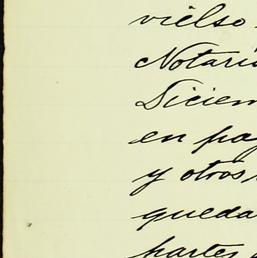 vielso
Notari
Diciem
en pa
y otros
queda
partes